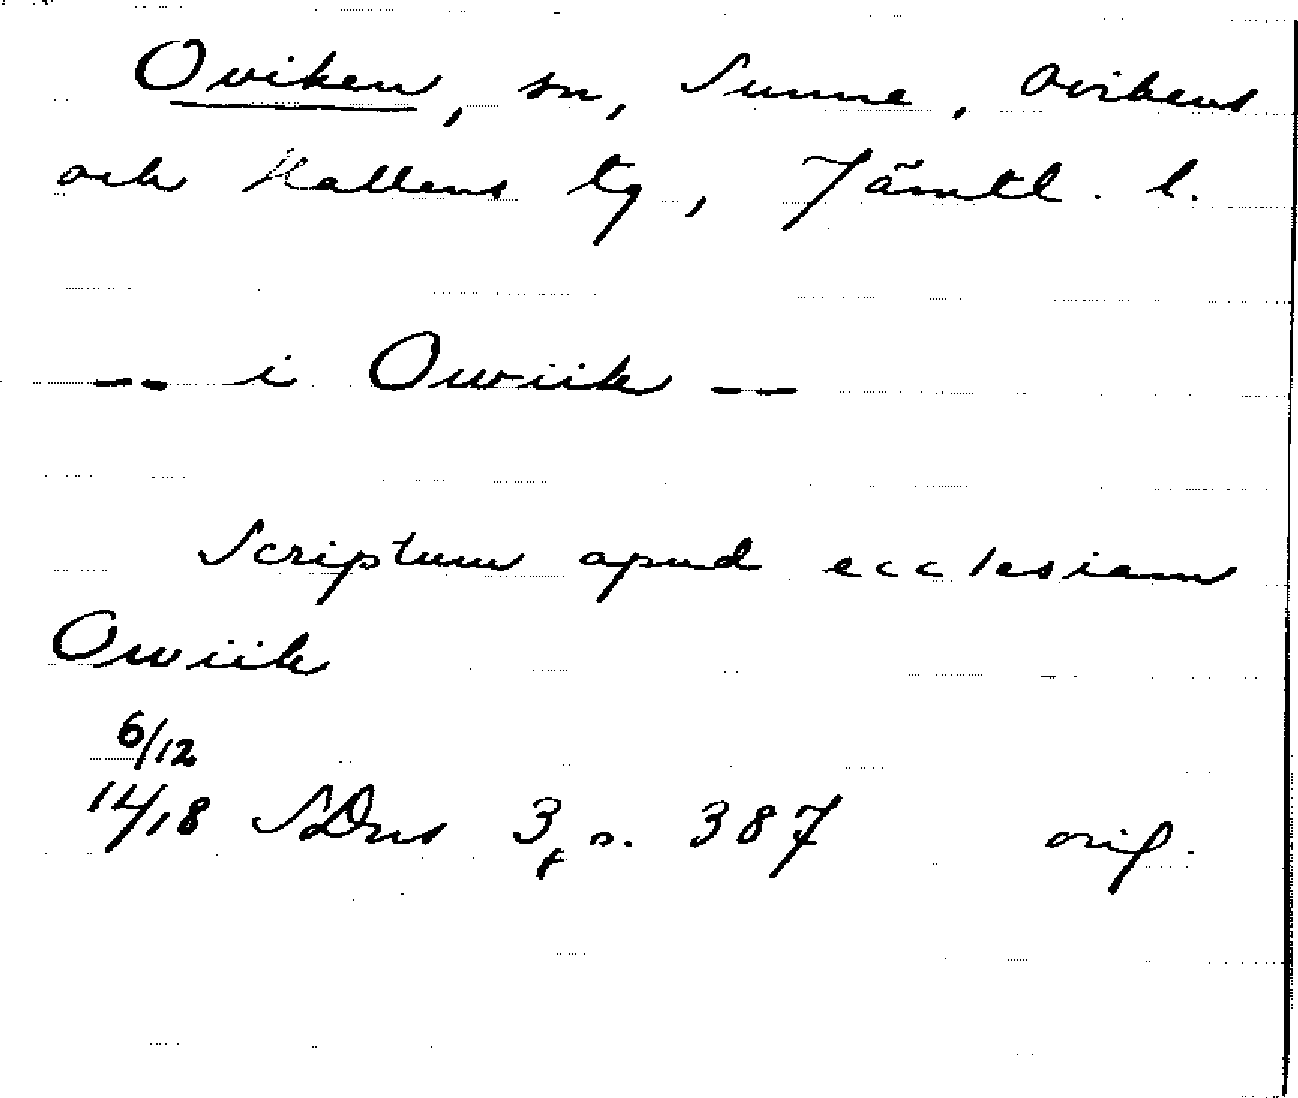 Oviken, sn, Sunne, Ovikens
och Hallens tg, Jämtl. l.
-- i Owiik --
Scriptum apud ecclesiam
Owiik
6/12
14/18 SDns 3, s. 387 orig.